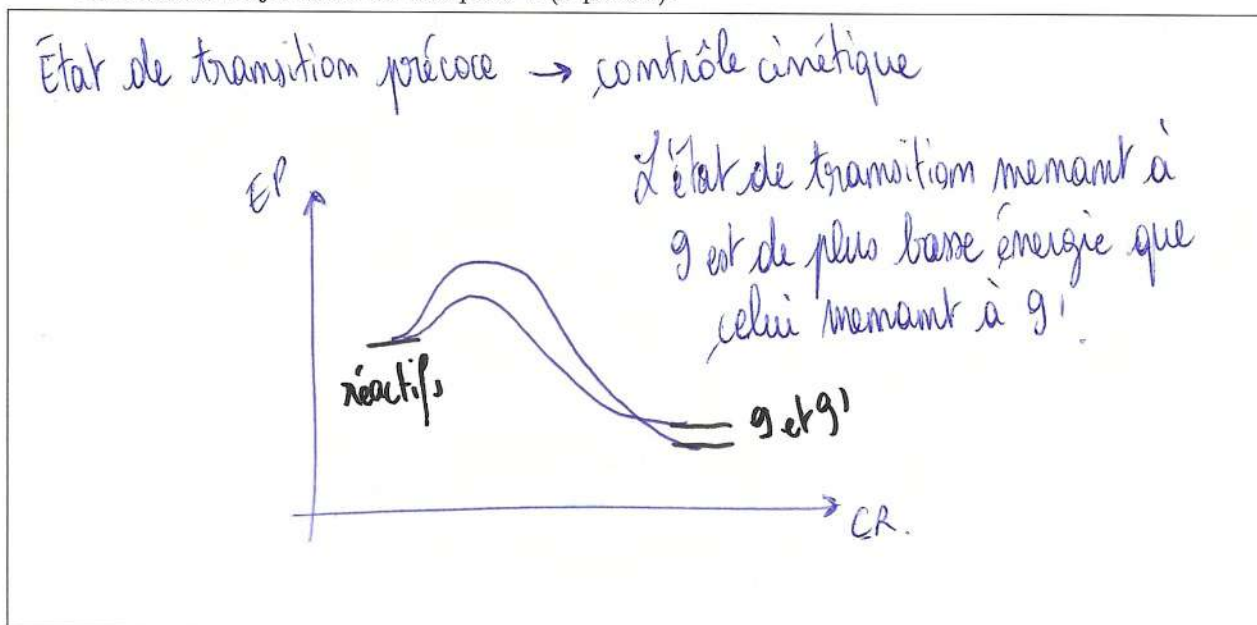 État de transition précoce → contrôle cinétique
L'état de transition menant à
9 est de plus basse énergie que
celui menant à 9'.
EP
réactifs
9 et 9'
CR.